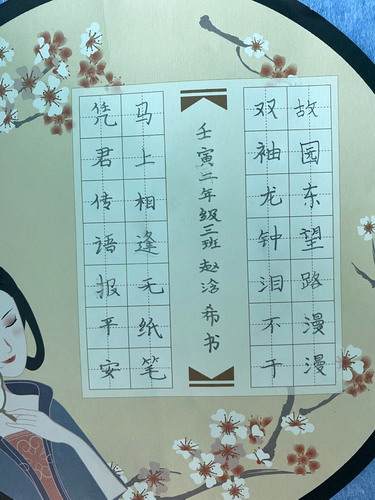 故园东望路漫漫
双袖龙钟泪不干
壬寅二年级三班赵浛希书
马上相逢无纸笔
凭君传语报平安